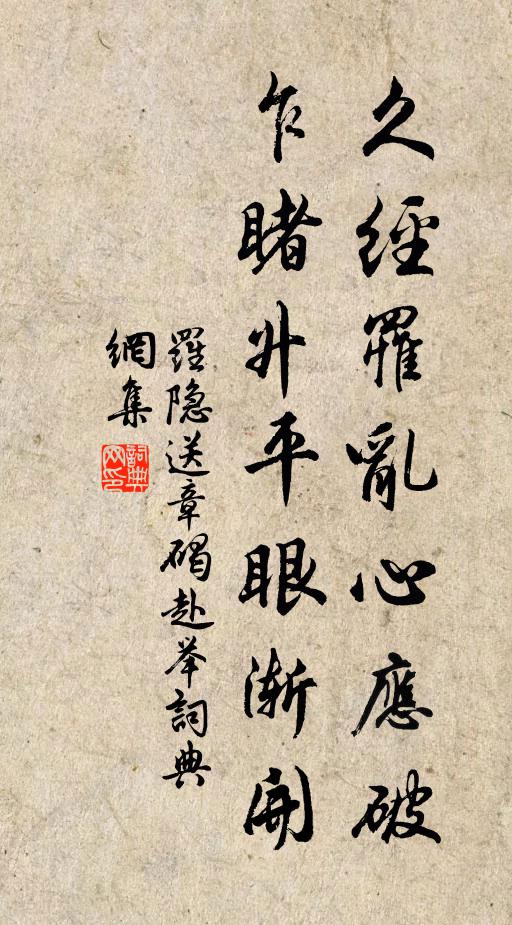 久經罹亂心應破
乍睹升平眼漸開
羅隐送章碣赴举詞典
網集
詞典
网印